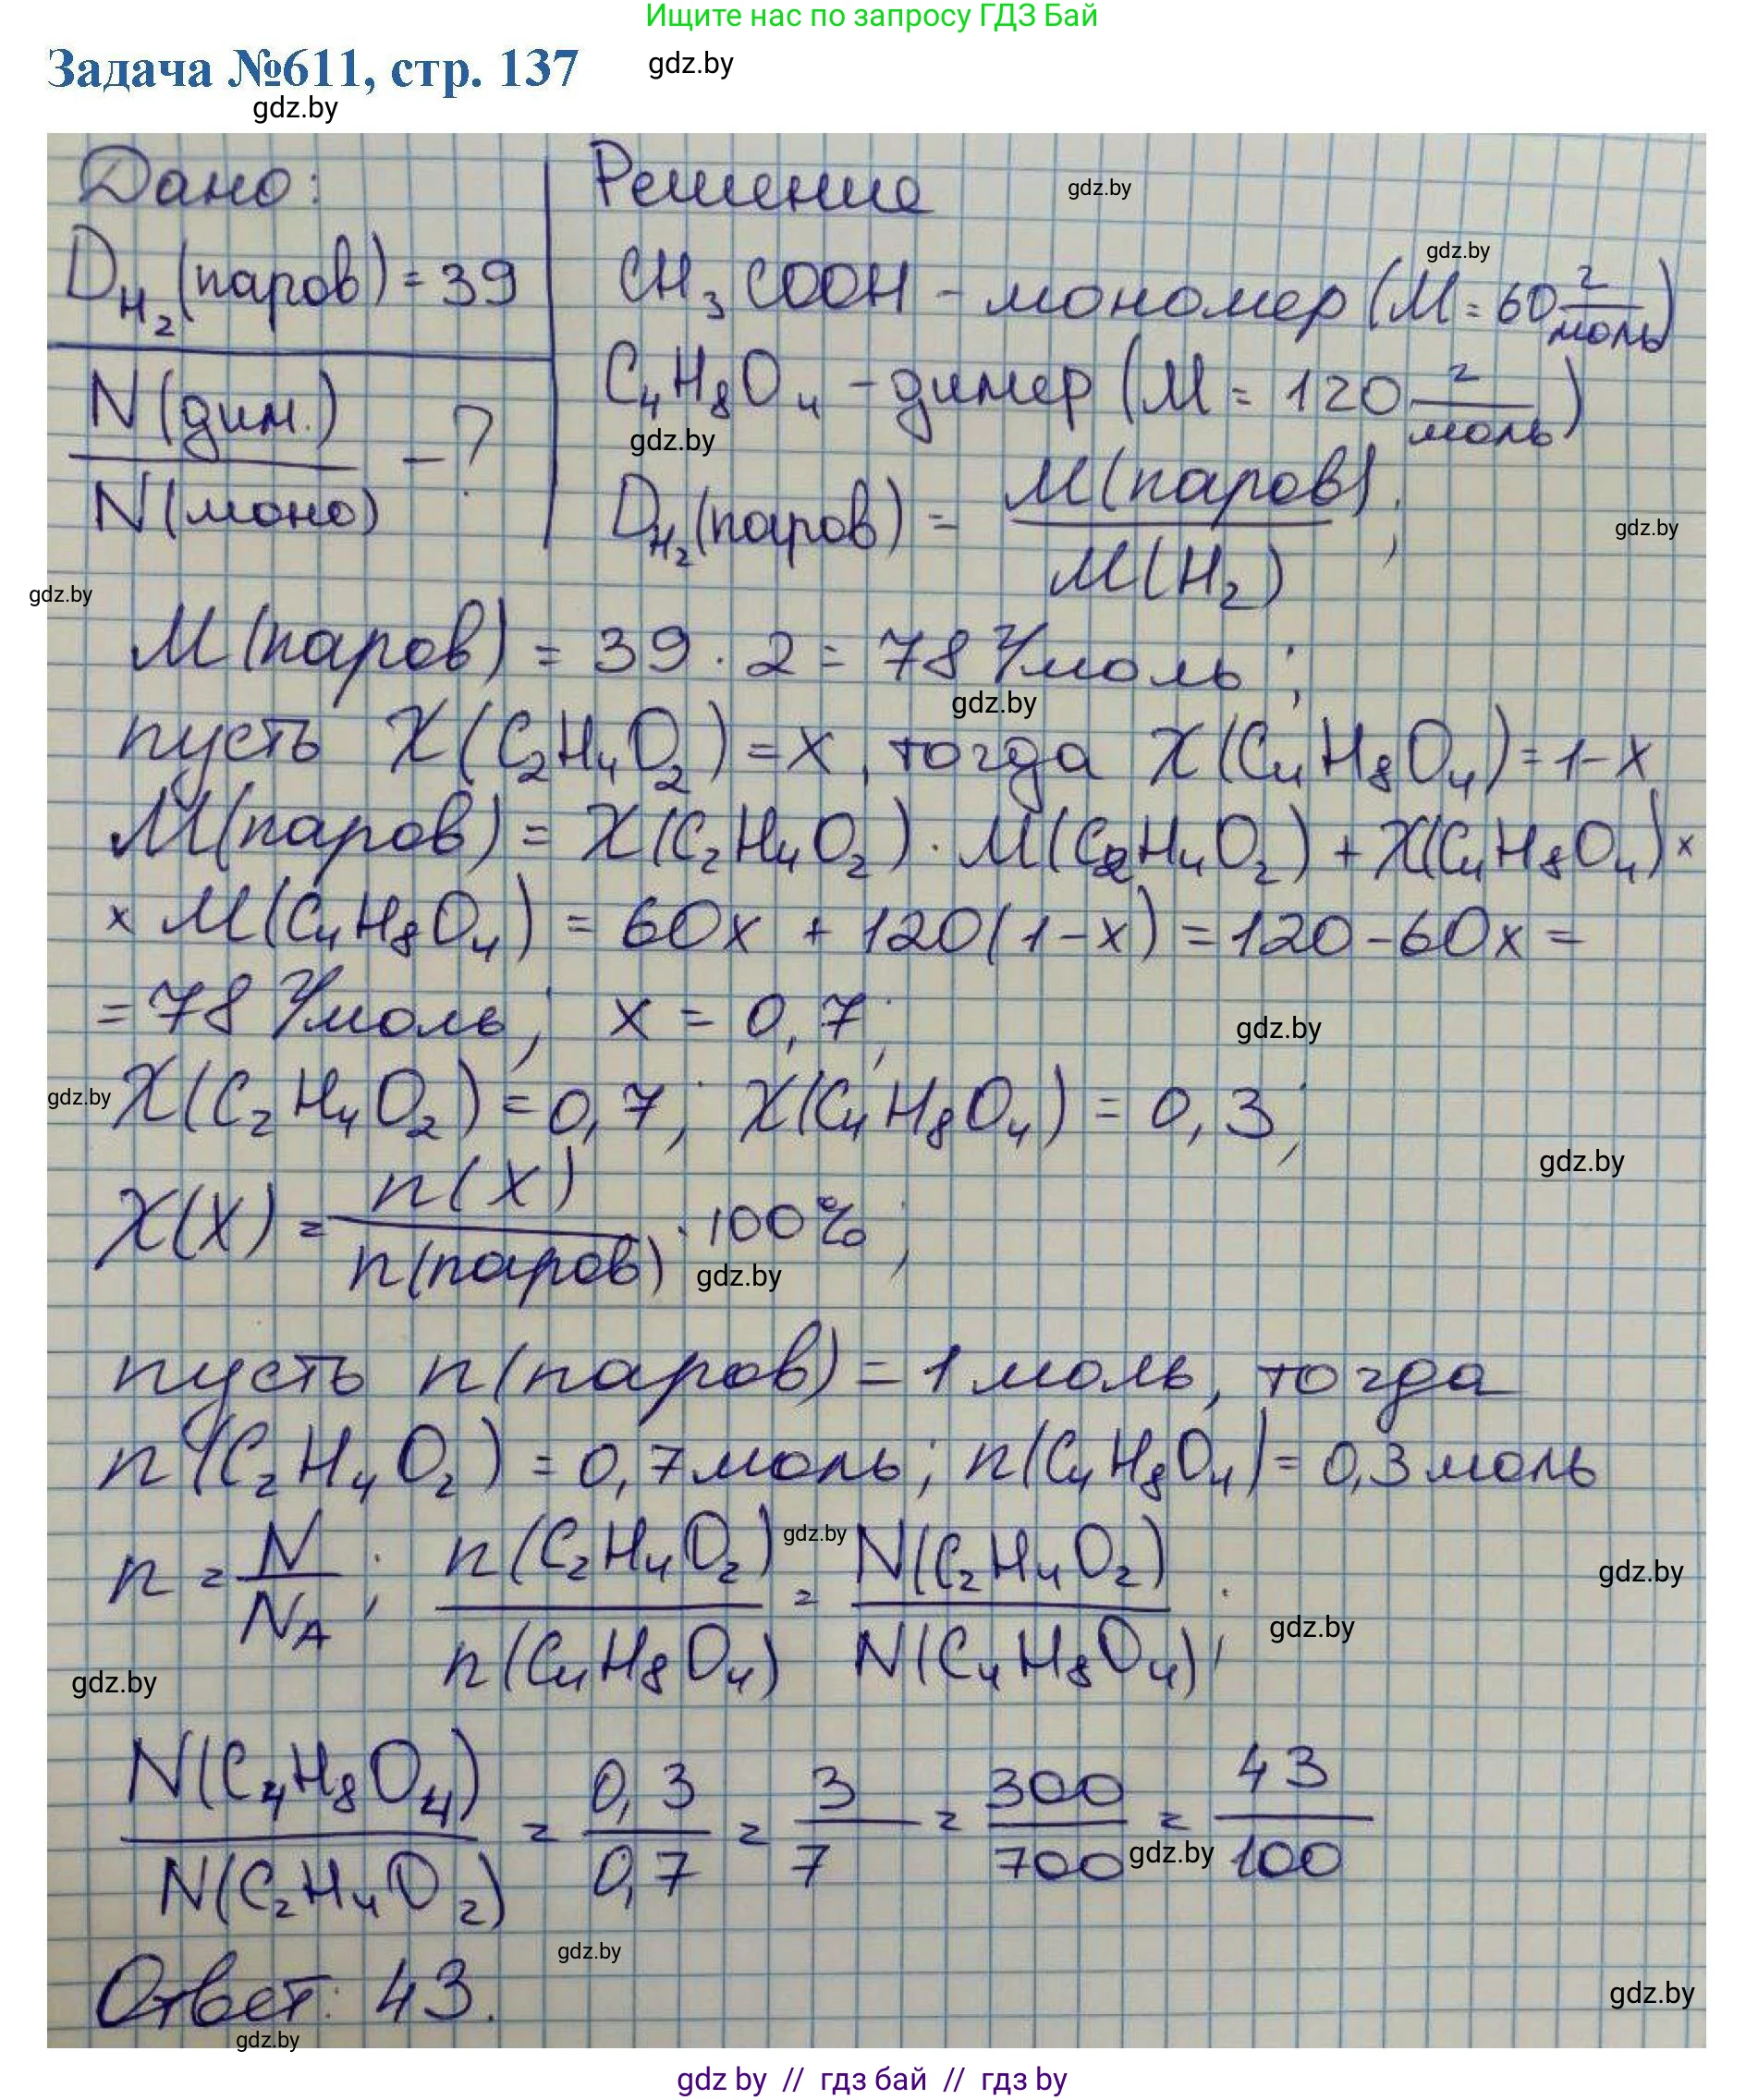 Ищите нас по запросу ГДЗ Бай
Задача №611, стр. 137
gdz.by
gdz.by
Дано:
D_H₂(паров) = 39
N(дим.)
/ N(моно) - ?
Решение
gdz.by
gdz.by
CH₃COOH - мономер (M = 60 г/моль)
C₄H₈O₄ - димер (M = 120 г/моль)
gdz.by
D_H₂(паров) = M(паров) / M(H₂);
gdz.by
gdz.by
M(паров) = 39 · 2 = 78 г/моль;
gdz.by
пусть X(C₂H₄O₂) = x, тогда X(C₄H₈O₄) = 1-x
M(паров) = X(C₂H₄O₂) · M(C₂H₄O₂) + X(C₄H₈O₄) ×
× M(C₄H₈O₄) = 60x + 120(1-x) = 120 - 60x =
= 78 г/моль; x = 0,7;
gdz.by
gdz.by
X(C₂H₄O₂) = 0,7; X(C₄H₈O₄) = 0,3;
gdz.by
X(X) = n(X) / n(паров) · 100%;
gdz.by
пусть n(паров) = 1 моль, тогда
n(C₂H₄O₂) = 0,7 моль; n(C₄H₈O₄) = 0,3 моль
gdz.by
n = N / N_A; n(C₂H₄O₂) / n(C₄H₈O₄) = N(C₂H₄O₂) / N(C₄H₈O₄);
gdz.by
gdz.by
gdz.by
N(C₄H₈O₄) / N(C₂H₄O₂) = 0,3 / 0,7 = 3 / 7 = 300 / 700 = 43 / 100
gdz.by
gdz.by
Ответ: 43.
gdz.by
gdz.by
gdz by // гдз бай // гдз by